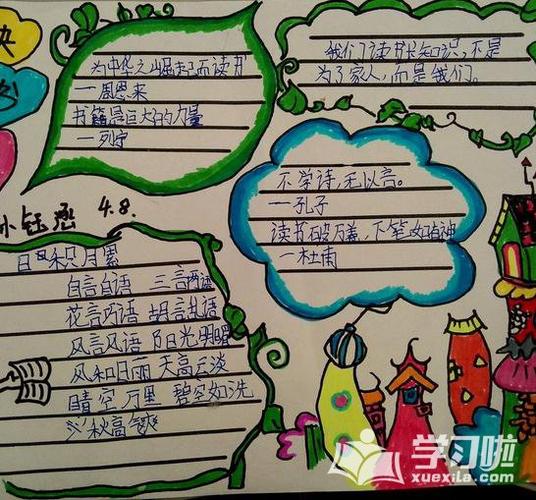 为中华之崛起而读书
一周恩来
书籍是巨大的力量
一列宁
我们读书长知识,不是
为了家人,而是我们。
不学诗,无以言。
一孔子
读书破万卷,下笔如有神
一杜甫
孙钰涵 4.8.
日积月累
自言自语 三言两语
花言巧语 胡言乱语
风言风语 阳光明媚
风和日丽 天高云淡
晴空万里 碧空如洗
秋高气爽
学习啦
xuexila.com